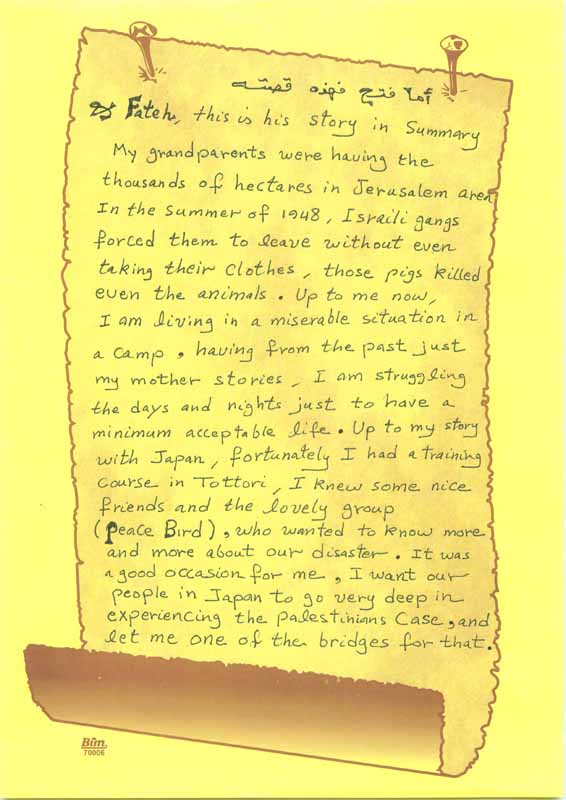 أما فتح فهذه قصته
Fateh, this is his story in Summary
My grandparents were having the
thousands of hectares in Jerusalem area
In the summer of 1948, Israili gangs
forced them to leave without even
taking their clothes, those pigs killed
even the animals. Up to me now,
I am living in a miserable situation in
a camp, having from the past just
my mother stories, I am struggling
the days and nights just to have a
minimum acceptable life. Up to my story
with Japan, fortunately I had a training
course in Tottori, I knew some nice
friends and the lovely group
(Peace Bird), who wanted to know more
and more about our disaster. It was
a good occasion for me, I want our
people in Japan to go very deep in
experiencing the palestinians Case, and
let me one of the bridges for that.
Bim
70006